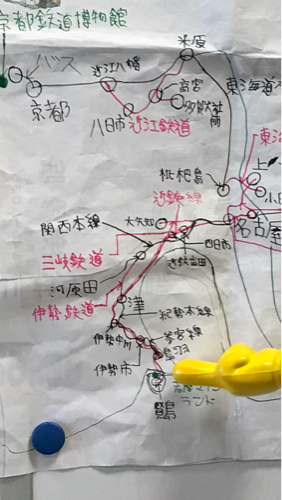 京都鉄道博物館
米原
バス
近江八幡
高宮
多賀大社前
東海道
京都
八日市
近江鉄道
枇杷島
上
小
名古屋
近鉄線
大矢知
関西本線
四日市
三岐鉄道
近鉄富田
河原田
伊勢鉄道
津
紀勢本線
伊勢中川
参宮線
鳥羽
伊勢市
ランド